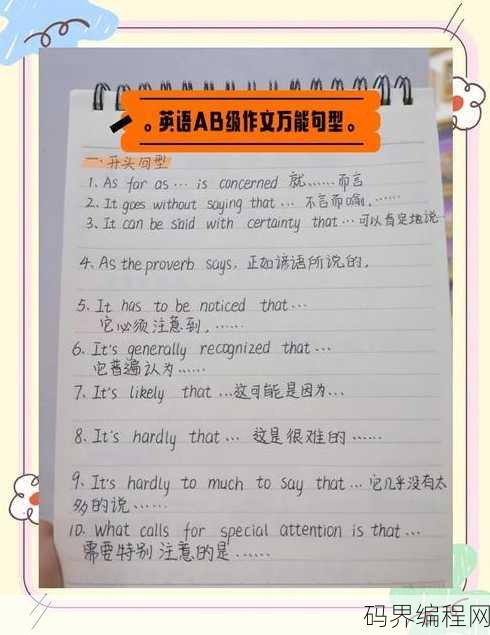 。英语AB级作文万能句型。
一.开头句型
1、As far as … is concerned 就……而言
2、It goes without saying that … 不言而喻,……
3、It can be said with certainty that …可以肯定地说
4、As the proverb says, 正如谚语所说的,
5、It has to be noticed that…
它必须注意到,……
6、It's generally recognized that …
它普遍认为……
7、It's likely that …这可能是因为…
8、It's hardly that … 这是很难的……
9、It's hardly to much to say that …它几乎没有太
多的说……
10、what calls for special attention is that…
需要特别注意的是……
码界编程网